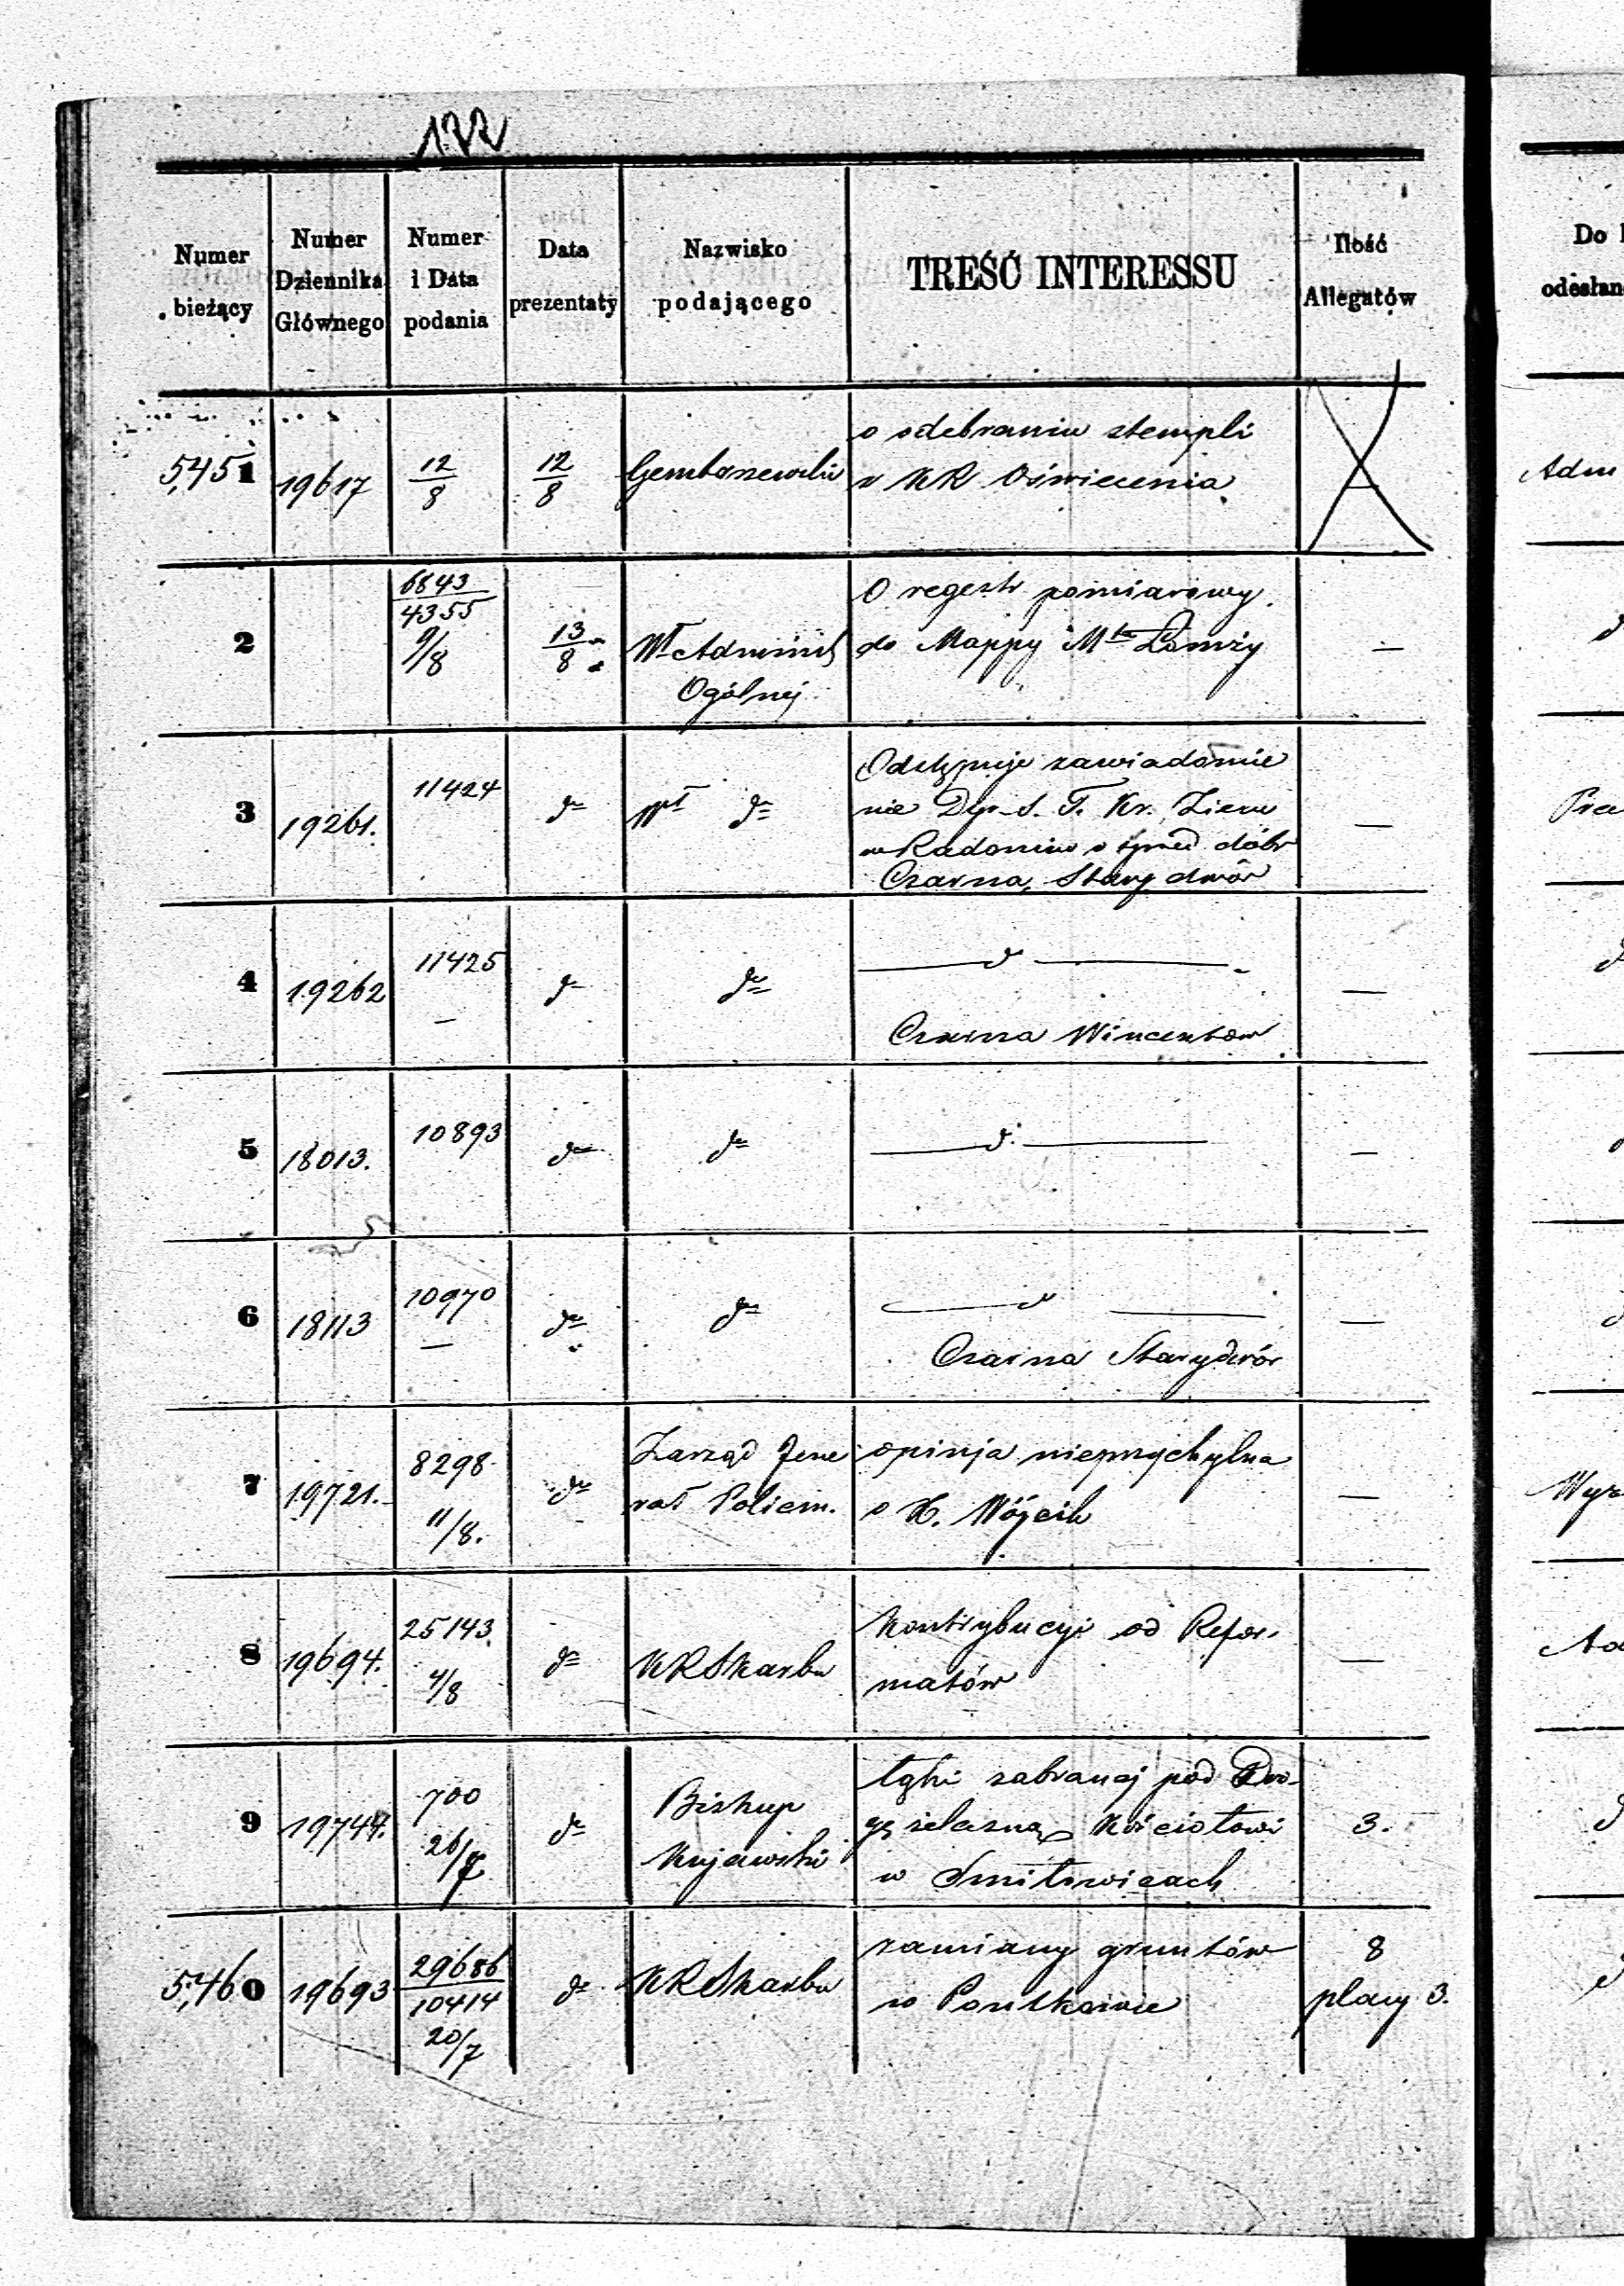 122
Numer bieżący
Numer Dziennika Głównego
Numer i Data podania
Data prezentaty
Nazwisko podającego
TREŚĆ INTERESSU
Ilość Allegatów
Do
odesłan
5,451 19617 12/8 12/8 o odebraniu stempli
w KR Oświecenia
Adm
2 6843/4355 9/8 13/8 Wł Administ
Ogólnej
O regestr pomiarowy
do Mappy Mta Łomży —
3 19261. 11424 do Wł do
Odstępuje zawiadomie
nie Dyr. S. T. Kr. Ziem
w Radomiu o sprzed dóbr
Czarna, Stary dwór —
4 19262 11425 — do do do —
Czarna Wincentów
5 18013. 10893 do do do —
6 18113 10970 — do do do —
Czarna Starydwór
7 19721. 8298 11/8. do Zarząd Jene
rał Policm.
opinja nieprzychylna
o X. Wójcik —
Wyz
8 19694. 25143 4/8 do KRSkarbu
Kontrybucyi od Refor-
matów —
Ad
9 19744. 700 26/7 do Biskup
Kujawski
łąki zabranej pod Dro-
gę żelazną Kościołowi
w Śmiłowicach 3.
5,460 19693 29686/10414 20/7 do KRSkarbu
zamiany gruntów
w 8
plany 3.